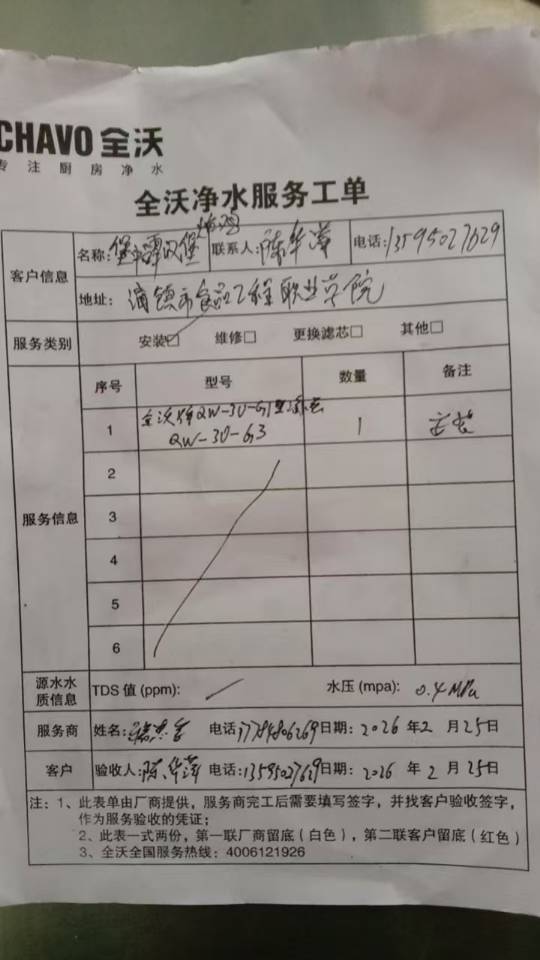 CHAVO 全沃
专注厨房净水
全沃净水服务工单
客户信息
名称: 堡 汉堡 炸鸡 联系人: 陈华萍 电话: 13595027629
地址: 市食品工程职业学院
服务类别 安装☑ 维修□ 更换滤芯□ 其他□
服务信息 序号 型号 数量 备注
1 全沃牌QW-30-G1型 QW-30-G3 1 安装
2
3
4
5
6
源水水质信息 TDS 值 (ppm): 水压 (mpa): 0.4 MPa
服务商 姓名: 电话 17784806269 日期: 2026 年 2 月 25 日
客户 验收人: 陈华萍 电话: 13595027629 日期: 2026 年 2 月 25 日
注: 1、此表单由厂商提供，服务商完工后需要填写签字，并找客户验收签字，
作为服务验收的凭证；
2、此表一式两份，第一联厂商留底（白色），第二联客户留底（红色）
3、全沃全国服务热线: 4006121926